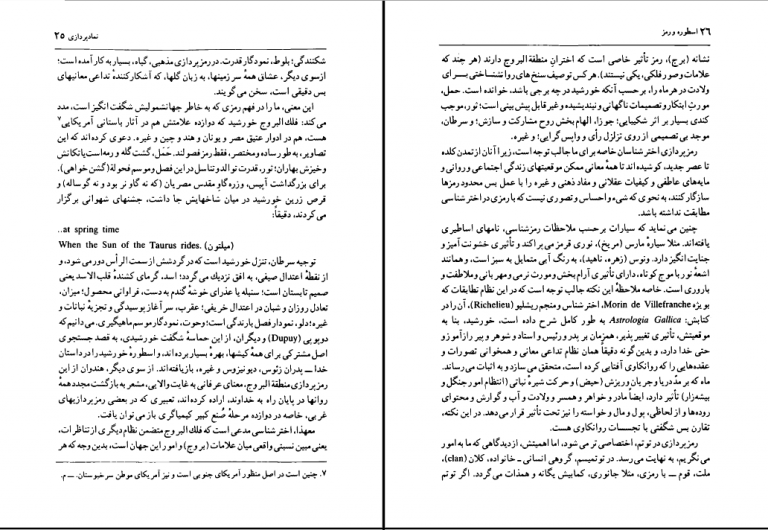 نمادپردازی ۲۵
شکنندگی؛ بلوط، نمودگار قدرت. در رمزپردازی مذهبی، گیاه، بسیار به کار آمده است؛
از سوی دیگر، عشاق همهٔ سرزمینها، به زبان گلها، که آشکارکنندهٔ تداعی معانیهای
بس دقیقی است، سخن می‌گویند.
این معنی، ما را در فهم رمزی که به خاطر جهانشمولیش شگفت انگیز است، مدد
می‌کند: فلك البروج خورشید که دوازده علامتش هم در آثار باستانی آمریکایی۷
هست، هم در ادوار عتیق مصر و یونان و هند و چین و غیره. دعوی کرده‌اند که این
تصاویر، به طور ساده و مختصر، فقط رمز فصولند. حَمَل، گشت گله و رمه است یا نکانش
و خیزش بهاران؛ ثور، قدرت توالد و تناسل در این فصل و موسم فحولة (گشن خواهی).
برای بزرگداشت آپیس، ورزه گاوِ مقدس مصریان (که نه گاو نر بود و نه گوساله) و
قرص زرین خورشید در میان شاخهایش جا داشت، جشنهای شهوانی برگزار
می‌کردند، دقیقاً:
..at spring time
When the Sun of the Taurus rides. (میلتون)
توجیه سرطان، تنزل خورشید است که در گردشش از سمت الرأس دور می‌شود، و
از نقطهٔ اعتدال صیفی، به افق نزدیك می‌گردد؛ اسد، گرمای کشندهٔ قلب الاسد یعنی
صمیم تابستان است؛ سنبله یا عذرای خوشهٔ گندم به دست، فراوانی محصول؛ میزان،
تعادل روزان و شبان در اعتدال خریفی؛ عقرب، سرآغاز پوسیدگی و تجزیهٔ نباتات و
غیره؛ دلو، نمودار فصل بارندگی است؛ وحوت، نمودگار موسم ماهیگیری. می‌دانیم که
دوپویی (Dupuy) و دیگران، از این حماسهٔ شگفت خورشیدی، به قصد جستجوی
اصل مشترکی برای همهٔ کیشها، بهره بسیار برده‌اند، و اسطورهٔ خورشید را در داستان
خدا ــ پدران زئوس، دیونیزوس و غیره، بازیافته‌اند. از سوی دیگر، هندوان از این
رمزپردازی منطقة البروج، معنای عرفانی به غایت والایی، مشعر به بازگشت مجدد همهٔ
روانها در پایان راه به خداوند، اراده کرده‌اند، تعبیری که در بعضی رمزپردازیهای
غربی، خاصه در دوازده مرحلهٔ صُنع کبیر کیمیاگری باز می‌توان یافت.
معهذا، اخترشناسی مدعی است که فلك البروج متضمن نظام دیگری از تناظرات،
یعنی مبین نسبتی واقعی میان علامات (بروج) و امور این جهان است، بدین وجه که هر
۷. چنین است در اصل منظور آمریکای جنوبی است و نیز آمریکای موطن سرخپوستان. ــ م.
۲۶ اسطوره و رمز
نشانه (برج)، رمز تأثیر خاصی است که اخترانِ منطقة البروج دارند (هر چند که
علامات و صور فلکی، یکی نیستند). هر کس توصیف سنخ‌های روانشناختی بــرای
ولادت در هر ماه را، بر حسب آنکه خورشید در چه برجی باشد، خوانده است. حمل،
مورثِ ابتکار و تصمیماتِ ناگهانی و نیندیشیده و غیرقابل پیش بینی است؛ ثور، موجب
کندی بسیار بر اثر شکیبایی؛ جوزا، الهام بخشِ روح مشارکت و سازش؛ و سرطان،
موجد بی‌تصمیمی از روی تزلزل رأی و واپس گرایی؛ و غیره.
رمزپردازی اختر شناسان خاصه برای ما جالب توجه است، زیرا آنان از تمدن کلده
تا عصر جدید، کوشیده‌اند تا همهٔ معانی ممکن موقعیتهای زندگی اجتماعی و روانی و
مایه‌های عاطفی و کیفیات عقلانی و مفاد ذهنی و غیره را با عمل بس محدود رمزها
سازگار کنند، به نحوی که شیء واحساس و تصوری نیست که با رمزی در اخترشناسی
مطابقت نداشته باشد.
چنین می‌نماید که سیارات بر حسب ملاحظات رمزشناسی، نامهای اساطیری
یافته‌اند. مثلاً سیارهٔ مارس (مریخ)، نوری قرمز می‌پراکند و تأثیری خشونت آمیز و
جنایت انگیز دارد. ونوس (زهره، ناهید)، به رنگ آبی متمایل به سبز است، و همانند
اشعهٔ نور با موج کوتاه، دارای تأثیری آرام بخش و مورث نرمی و مهربانی و ملاطفت و
باروری است. خاصه ملاحظهٔ این نکته جالب توجه است که در این نظام تطابقات که
بویژه Morin de Villefranche، اخترشناس و منجم ریشلیو (Richelieu)، آن را در
کتابش: Astrologia Gallica به طور کامل شرح داده است، خورشید، بنا به
موقعیتش، تأثیری تغییرپذیر، همزمان بر پدر و رئیس و استاد و شوهر و پیر رازآموز و
حتی خدا دارد، و بدین گونه دقیقاً همان نظام تداعی معانی و همخوانی تصورات و
عقده‌هایی را که روانکاوی آفتابی کرده است، متحقق می‌سازد و به اثبات می‌رساند.
ماه که بر مدّ دریا و جریان و ریزش (حیض) و حرکت شیرهٔ نباتی (انتظام امور جنگل و
بیشه‌زار) تأثیر دارد، ایضاً مادر و خواهر و همسر و ولادت و آب و گوارش و محتوای
روده‌ها و از لحاظی، پول و مال و خواسته را نیز تحت تأثیر قرار می‌دهد. در این نکته،
تقارن بس شگفتی با تجسسات روانکاوی هست.
رمزپردازی در توتم، اختصاصی‌تر می‌شود، اما اهمیتش، از دیدگاهی که ما به امور
می‌نگریم، به نهایت می‌رسد. در توتمیسم، گروهی انسانی ــ خانواده، کلان (clan)،
ملت، قوم ــ با رمزی، مثلا جانوری، کمابیش یگانه و همذات می‌گردد. اگر توتم